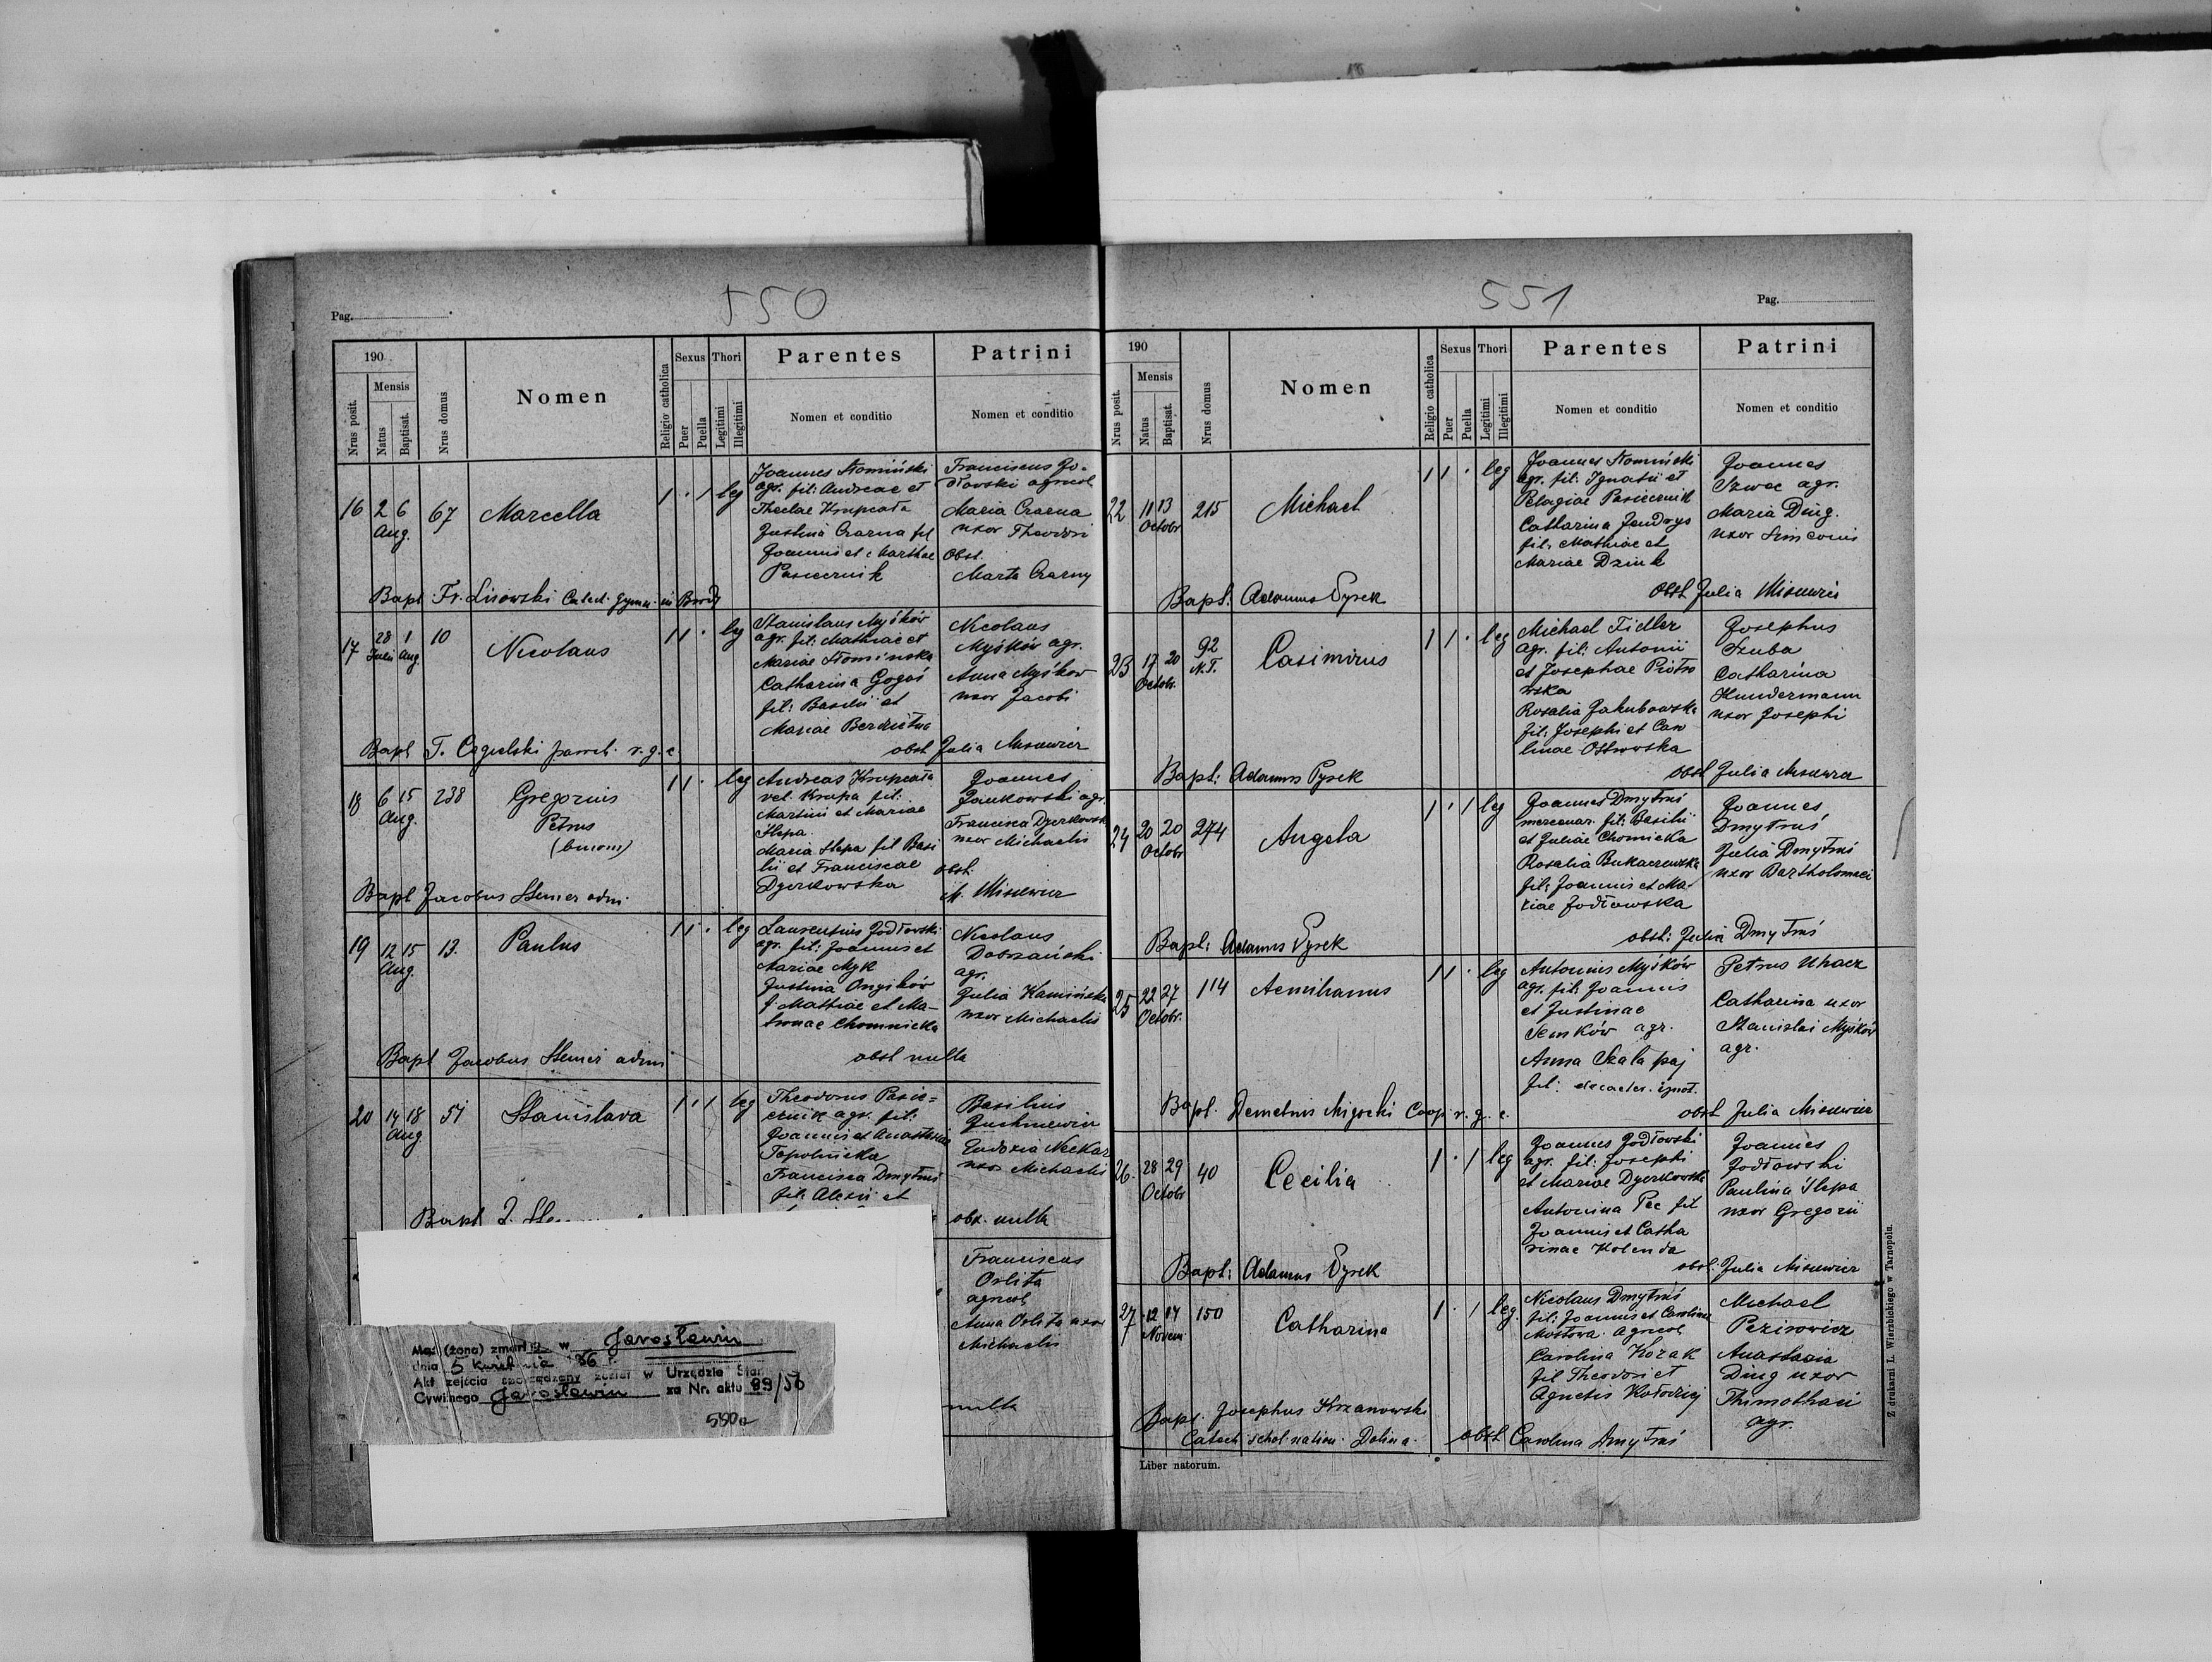 550
Pag.
190
Mensis
Nrus posit.
Natus
Baptisat.
Nrus domus
Nomen
Religio catholica
Sexus
Puer
Puella
Thori
Legitimi
Illegitimi
Parentes
Nomen et conditio
Patrini
Nomen et conditio
16
2 6
Aug.
67
Marcella
1 . 1 leg
Joannes Słomiński
agr. fil: Andreae et
Theclae Krupcała
Justina Czarna fil
Joannis et Marthae
Pasiecznik
Franciscus Jo-
dłowski agricol
Maria Czarna
uxor Theodori
Obst.
Marta Czarny
Bapt Fr. Lisowski Catech. gymn. in
17
28 1
Julii Aug.
10
Nicolaus
1 1 . leg
Stanislaus Myśków
agr. fil: Mathiae et
Mariae Słomińska
Catharina Gogoś
fil: Basilii et
Mariae
Nicolaus
Myśków agr.
Anna Myśków
uxor Jacobi
Bapt T. Cegielski paroch. r. g. c
obst Julia Misiewicz
18
6 15
Aug.
238
Gregorius
Petrus
(binom)
1 1 . leg
Andreas Krupcała
vel. Krupa fil:
Martini et Mariae
Ślepa
Maria Slepa fil Basi
lii et Franciscae
Dyczkowska
Joannes
Jankowski agr.
Francisca Dyczkowsk
uxor Michaelis
obst.
M. Misiewicz
Bapt Jacobus Stemer adm.
19
12 15
Aug.
13.
Paulus
1 1 . leg
Laurentius Jodłowski
agr. fil: Joannis et
Mariae Myk
Justina
f Mathiae et Ma-
tronae Chomnicka
Nicolaus
Dobrzański
agr.
Julia Kamińska
uxor Michaelis
Bapt Jacobus Stemer adm
obst nulla
20
14 18
Aug
51
Stanislava
1 . 1 leg
Theodorus Pasie=
cznik agr. fil:
Joannis et Anastasia
Topolnicka
Francisca Dmytruś
fil: Alexii et
Basilius
Juchniewicz
Eudoxia Neckar
uxor Michaelis
Bapt J.
obst. nulla
Franciscus
Orlita
agricol
Anna Orlita uxor
Michaelis
nulla
Mąż (żona) zmarł w Jarosławiu
dnia 5 kwietnia 56 r.
Akt zejścia sporządzony został w Urzędzie Stan
Cywilnego Jarosławiu za Nr. aktu 89/56
580a
551
Pag.
190
Mensis
Nrus posit.
Natus
Baptisat.
Nrus domus
Nomen
Religio catholica
Sexus
Puer
Puella
Thori
Legitimi
Illegitimi
Parentes
Nomen et conditio
Patrini
Nomen et conditio
22
11 13
Octobr
215
Michael
1 1 . leg
Joannes Słomiński
agr. fil: Ignatii et
Pelagiae Pasiecznik
Catharina Jendrys
fil: Mathiae et
Mariae Dziuk
Joannes
Szwec agr.
Maria Ding.
uxor Simeonis
Bapt: Adamus Pyrek
obst Julia Misiewicz
23
17 20
Octobr.
92
N.T.
Casimirus
1 1 . leg
Michael Fidler
agr. fil: Antonii
et Josephae Piotro
wska
Rosalia Jakubowska
fil: Josephi et Caro
linae Ostrowska
Josephus
Szuba
Catharina
Hundermann
uxor Josephi
Bapt: Adamus Pyrek
obst Julia Misiewicz
24
20 20
Octobr
274
Angela
1 . 1 leg
Joannes Dmytruś
mercenar. fil: Basilii
et Juliae Chomicka
Rosalia Bukaczewska
fil: Joannis et Ma-
riae Jodłowska
Joannes
Dmytruś
Julia Dmytruś
uxor Bartholomaei
Bapt: Adamus Pyrek
obst: Julia Dmytruś
25
22 27
Octobr.
114
Aemilianus
1 1 . leg
Antonius Myśków
agr. fil: Joannis
et Justinae
Semków agr.
Anna Skala paj
fil:
Petrus Uhacz
Catharina uxor
Stanislai Myśków
agr.
Bapt. Demetrius Migocki Coop r. g. c.
obst Julia Misiewicz
26.
28 29
Octobr
40
Cecilia
1 . 1 leg
Joannes Jodłowski
agr. fil: Josephi
et Mariae Dyczkowska
Antonina Pec fil
Joannis et Catha
rinae Kolenda
Joannes
Jodłowski
Paulina Ślepa
uxor Gregorii
Bapt: Adamus Pyrek
obst. Julia Misiewicz
27
12 14
Novem
150
Catharina
1 . 1 leg.
Nicolaus Dmytruś
fil: Joannis et Carolina
Mostowa agricol
Carolina Kozak
fil Theodori et
Agnetis Kołodziej
Michael
Anastasia
Ding uxor
Thimothaei
agr.
Bapt. Josephus Krzanowski
Catech schol. nation. Dolina.
obst Carolina Dmytruś
Liber natorum.
Z drukarni L. Wierzbickiego w Tarnopolu.